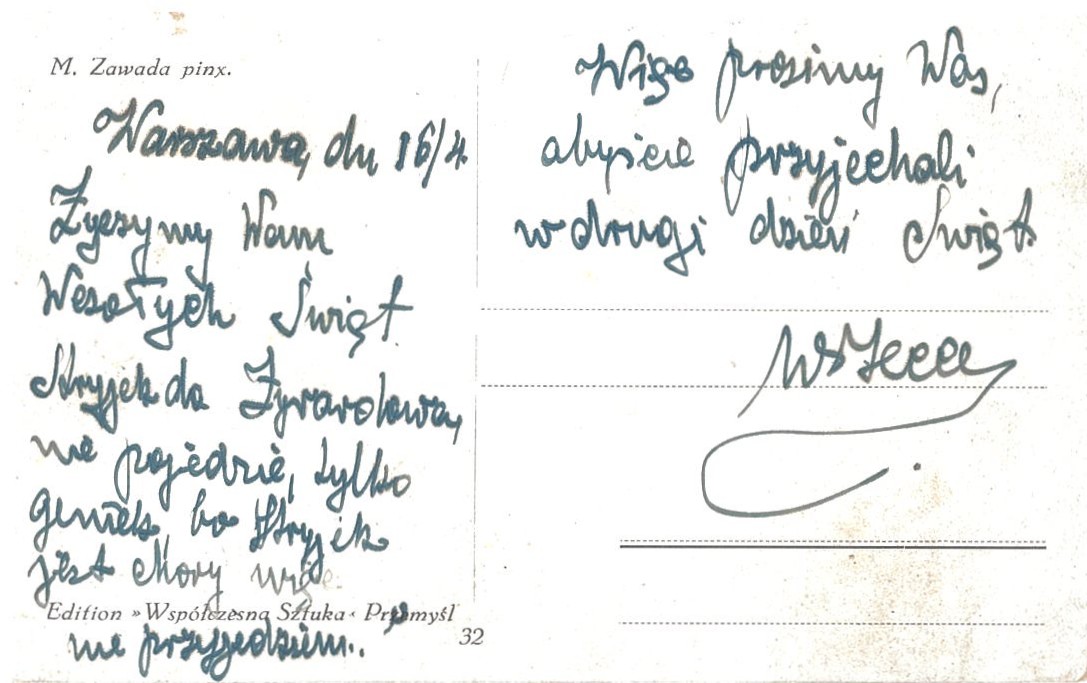 M. Zawada pinx.
Warszawa, dn, 16/4
Życzymy Wam
Wesołych Świąt
Stryjek do Żyrardowa,
nie pojedzie, tylko
geniek, bo Stryjek
jest chory więc
Edition »Współczesna Sztuka« Przemyśl
nie przyjedziem..
32
Więc prosimy Was,
abyście przyjechali
w drugi dzień Świąt